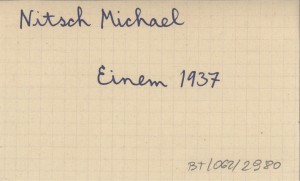 Nitsch Michael
Einem 1937
BT/062/2980